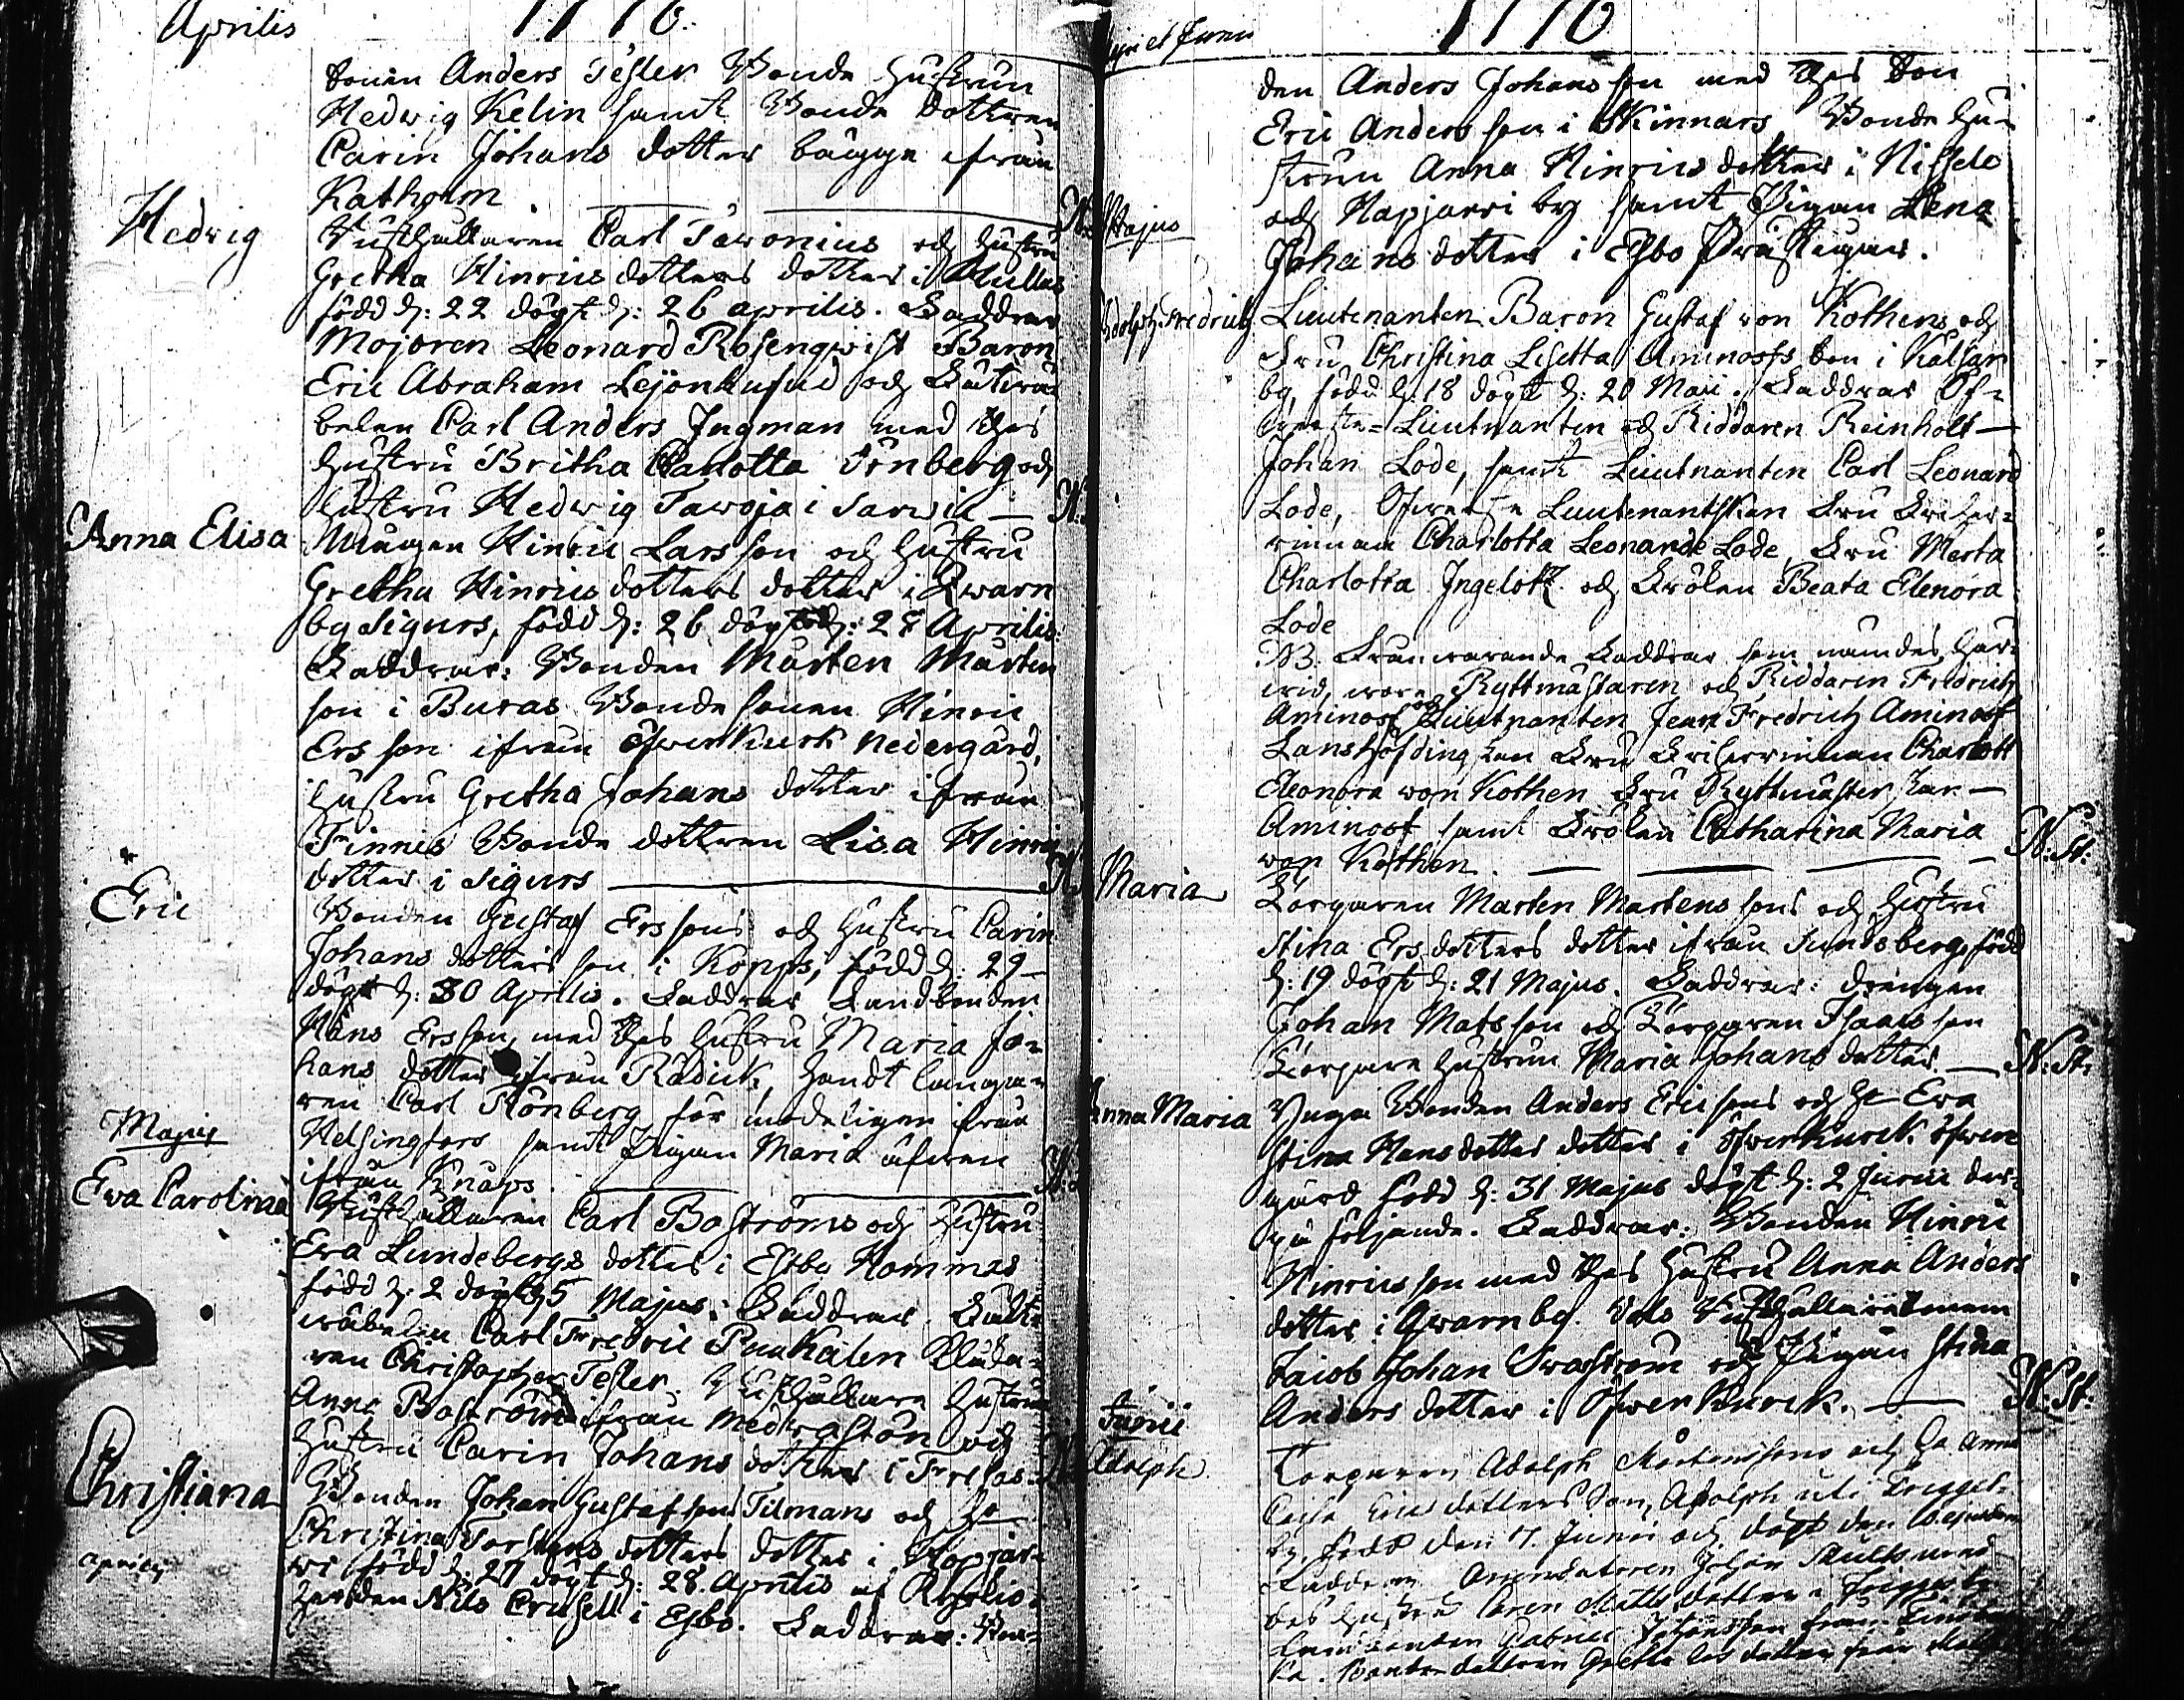 Aprilis 1776.
sonen Anders Tesler Bonde hustrun
Hedwig Kelin samt Bonde dottren
Carin Johans dotter bägge ifrån
Katholm
Hedvig
Rusthållaren Carl Tawonius och hustru
Gretha Hinrics dotters dotter i Mullas
född d: 22 döpt d: 26 aprilis. Faddrar
Majoren Leonard Rosenqwist Baron
Eric Abraham Lejonhufud och
belen Carl Anders Ingman med thes
hustru Britha Carlotta Örnberg och
hustru Hedwig Tawoja i Sarwik
Anna Elisa
Hinric Larsson och hustru
Gretha Hinrics dotters dotter i Qwarn
by Sigurs, född d: 26 döpt d: 28 Aprilis.
Faddrar: Bonden Mårten Mårten
son i Buras Bonde sonen Hinric
Ersson ifrån Öfwerkurk Nedergård,
hustru Gretha Johans dotter ifrån
Finnis Bonde dottren Lisa Hinric
dotter i Sigurs
Eric
Bonden Gustaf Erssons och hustru Carin
Johans dotters son i Konys, född d: 29
döpt d: 30 Aprilis. Faddrar Landbonden
Hans Ersson, med thes hustru Maria Jo-
hans dotter ifrån Rådick, handtlanga-
ren Carl Rönberg för modeligen ifrån
Helsingfors samt Pigan Maria äfwen
ifrån Knaps
Majus
Ewa Carolina
Rusthållaren Carl Boströms och hustru
Ewa Lundebergs dotter i Esbo Hommas
född d: 2 döpt d: 5 Majus: Faddrar
Carl Fredric Punkalen
ren Christopher Tesler. Rusthållare hustrun
Anna Boström ifrån Medwastön och
hustru Carin Johans dotter i Frelsas
Christiana
Bonden Johan Gustafsons Tilmans och H:
Christina Torstens dotters dotter i Nopjar-
wi född d: 27 döpt d: 28. Aprilis af Kyrkio-
herden Nils Crusell i Esbo. Faddrar: Bon-
Maji et Junii 1776
den Anders Johansson med thes son
Eric Andersson i Skinnars Bonde hu-
strun Anna Hinrics dotter i Nissele
och Napjarri by samt Pigan Lena
Johans dotter i Esbo Prästegår.
Majus
Adolph Fredrich
Lieutenanten Baron Gustaf von Kothens och
Fru Christina Lisetta Aminoffs son i Kalljar
by, född d: 18 döpt d: 20 Maii. Faddrar Öf-
werste-Lieutnanten och Riddaren Reinholt
Johan Lode, samt Lieutnanten Carl Leonard
Lode, Öfwerste Lieutenantskan Fru Friher-
rinnan Charlotta Leonarde Lode, Fru Merta
Charlotta Ingelotz och Fröken Beata Elenora
Lode
NB. Frånwarande Faddrar som nämdes här-
wid, woro Ryttmästaren och Riddaren Fredrich
Aminoff och Lieutnanten Jean Fredrich Aminoff
Landshöfdingskan Fru Friherrinnan Charlott
Eleonora von Kothen Fru Ryttmästerskan
Aminoff samt Fröken Catharina Maria
von Kothen. N: St:
Maria
Torparen Marten Martenssons och hustru
Stina Ers dotters dotter ifrån Sundsberg, född
d: 19 döpt d: 21 Majus. Faddrar: drängen
Johan Matsson och Torparen Isaacsson
Torpare hustrun Maria Johans dotter. N: St:
Anna Maria
Unga Bonden Anders Ericssons och H: Ewa
Stina Hans dotters dotter i Öfwerkurck öfwer
gård född d: 31 Majus döpt d: 2 Junii der-
på följande. Faddrar: Bonden Hinric
Hinricsson med thes hustru Anna Anders
dotter i Qwarnby. Vols Rusthållaresonen
Jacob Johan Swaström och Pigan Stina
Anders dotter i Öfwerkurck. N: St:
Junii
Adolph
Torparen Adolph Mårtenssons och Ha Anna
Caisa Erics dotters son, Adolph uti Friggel-
by född den 7. Junii och döpt den
Faddrar Arrendatoren Johan med
des hustru Caren Matts dotter i
Landbonden Gabriel Johansson från
Bonde dottren Gretha dotter från